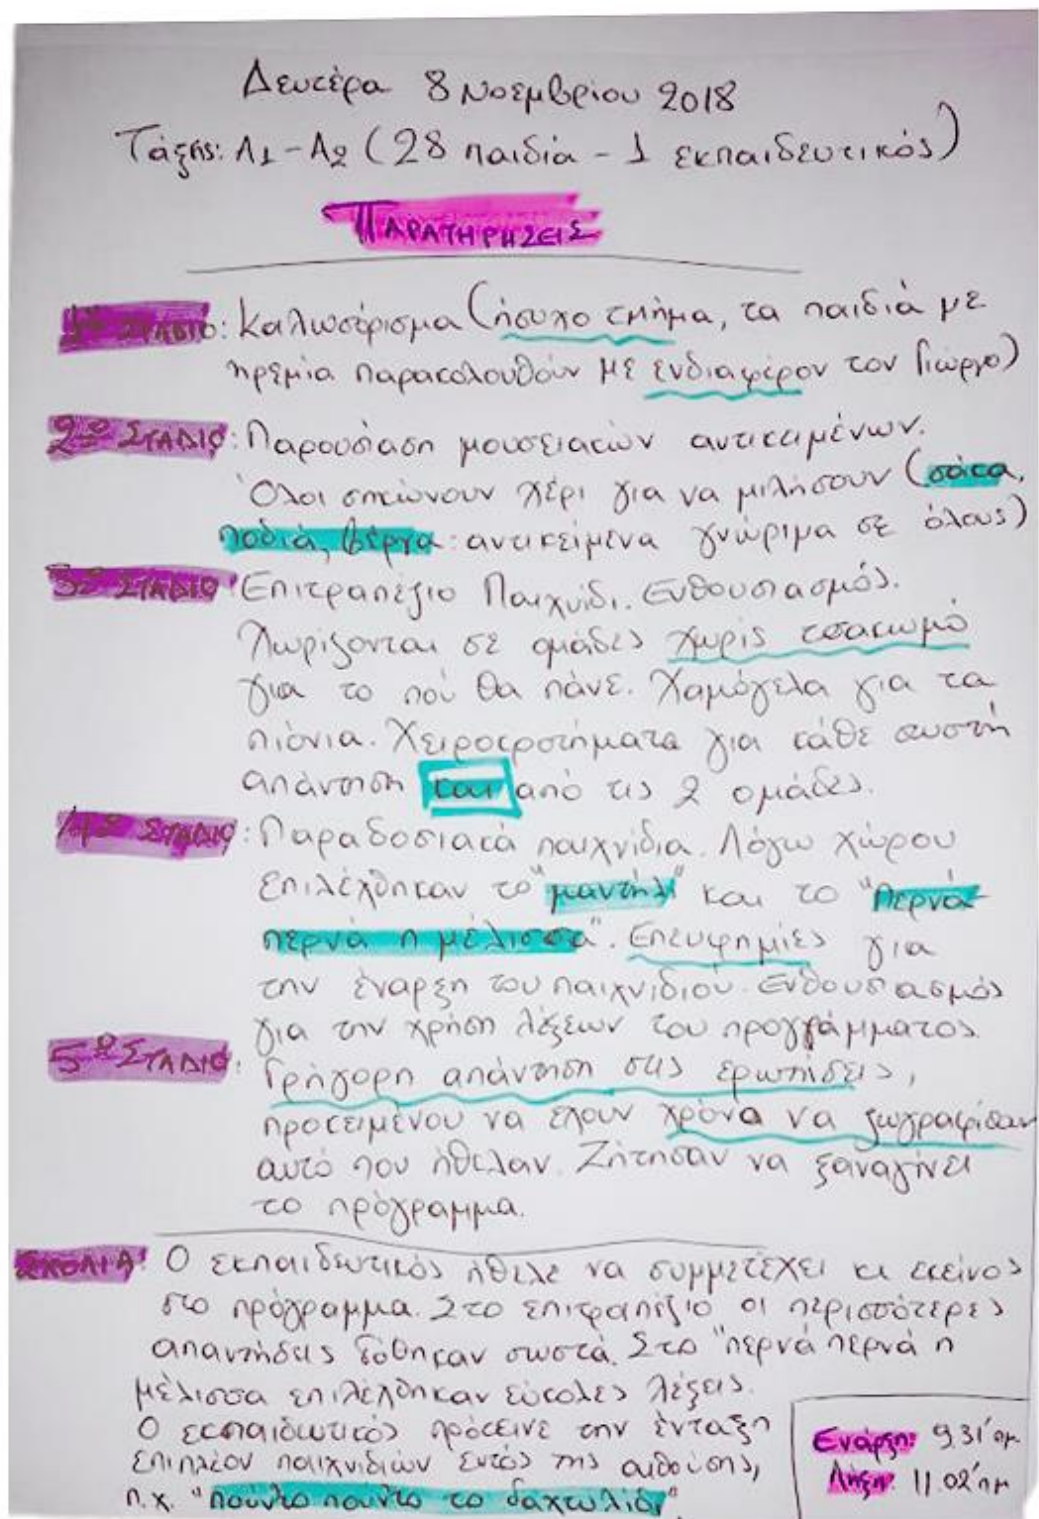 Δευτέρα 8 Νοεμβρίου 2018
Τάξης: Α1 - Α2 (28 παιδιά - 1 εκπαιδευτικός)
ΠΑΡΑΤΗΡΗΣΕΙΣ
1ο ΣΤΑΔΙΟ: Καλωσόρισμα (ήσυχο τμήμα, τα παιδιά με
ηρεμία παρακολουθούν με ενδιαφέρον τον Γιώργο)
2ο ΣΤΑΔΙΟ: Παρουσίαση μουσειακών αντικειμένων.
Όλοι σηκώνουν χέρι για να μιλήσουν (σάκα,
ποδιά, βέργα: αντικείμενα γνώριμα σε όλους)
3ο ΣΤΑΔΙΟ: Επιτραπέζιο Παιχνίδι. Ενθουσιασμός.
Χωρίζονται σε ομάδες χωρίς τσακωμό
για το πού θα πάνε. Χαμόγελα για τα
πιόνια. Χειροκροτήματα για κάθε σωστή
απάντηση και από τις 2 ομάδες.
4ο ΣΤΑΔΙΟ: Παραδοσιακά παιχνίδια. Λόγω χώρου
επιλέχθηκαν το "μαντήλι" και το "Περνά-
περνά η μέλισσα". Επευφημίες για
την έναρξη του παιχνιδιού. Ενθουσιασμός
για την χρήση λέξεων του προγράμματος.
5ο ΣΤΑΔΙΟ: Γρήγορη απάντηση στις ερωτήσεις,
προκειμένου να έχουν χρόνο να ζωγραφίσουν
αυτό που ήθελαν. Ζήτησαν να ξαναγίνει
το πρόγραμμα.
ΣΧΟΛΙΑ: Ο εκπαιδευτικός ήθελε να συμμετέχει κι εκείνος
στο πρόγραμμα. Στο επιτραπέζιο οι περισσότερες
απαντήσεις δόθηκαν σωστά. Στο "περνά περνά η
μέλισσα επιλέχθηκαν εύκολες λέξεις.
Ο εκπαιδευτικός πρότεινε την ένταξη
επιπλέον παιχνιδιών εντός της αιθούσης,
π.χ. "πούντο πούντο το δαχτυλίδι"
Εναρξη: 9.31' πμ
Λήξη: 11.02' πμ